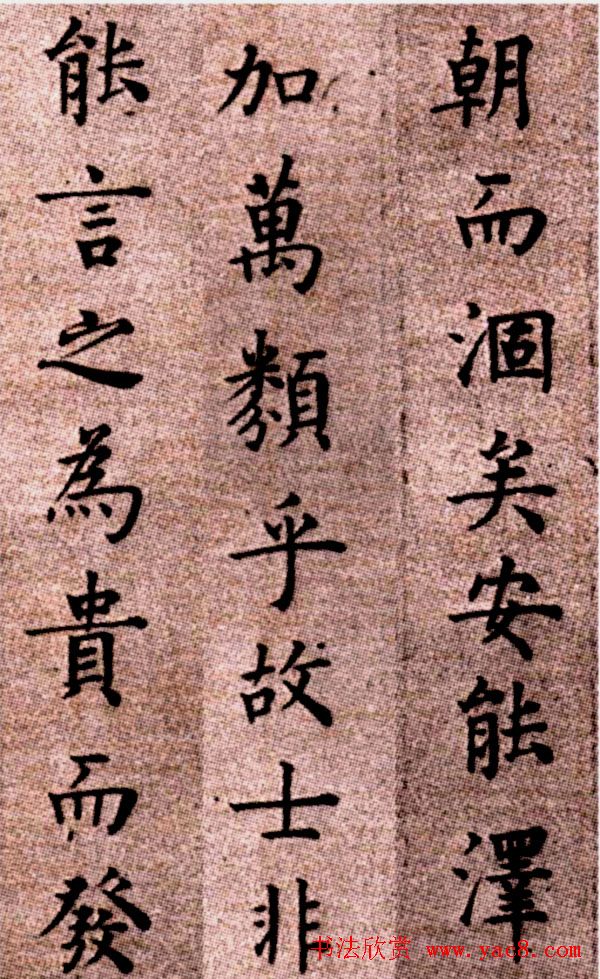 朝而涸矣安能澤
加萬類乎故士非
能言之為貴而發
书法欣赏 www.yac8.com